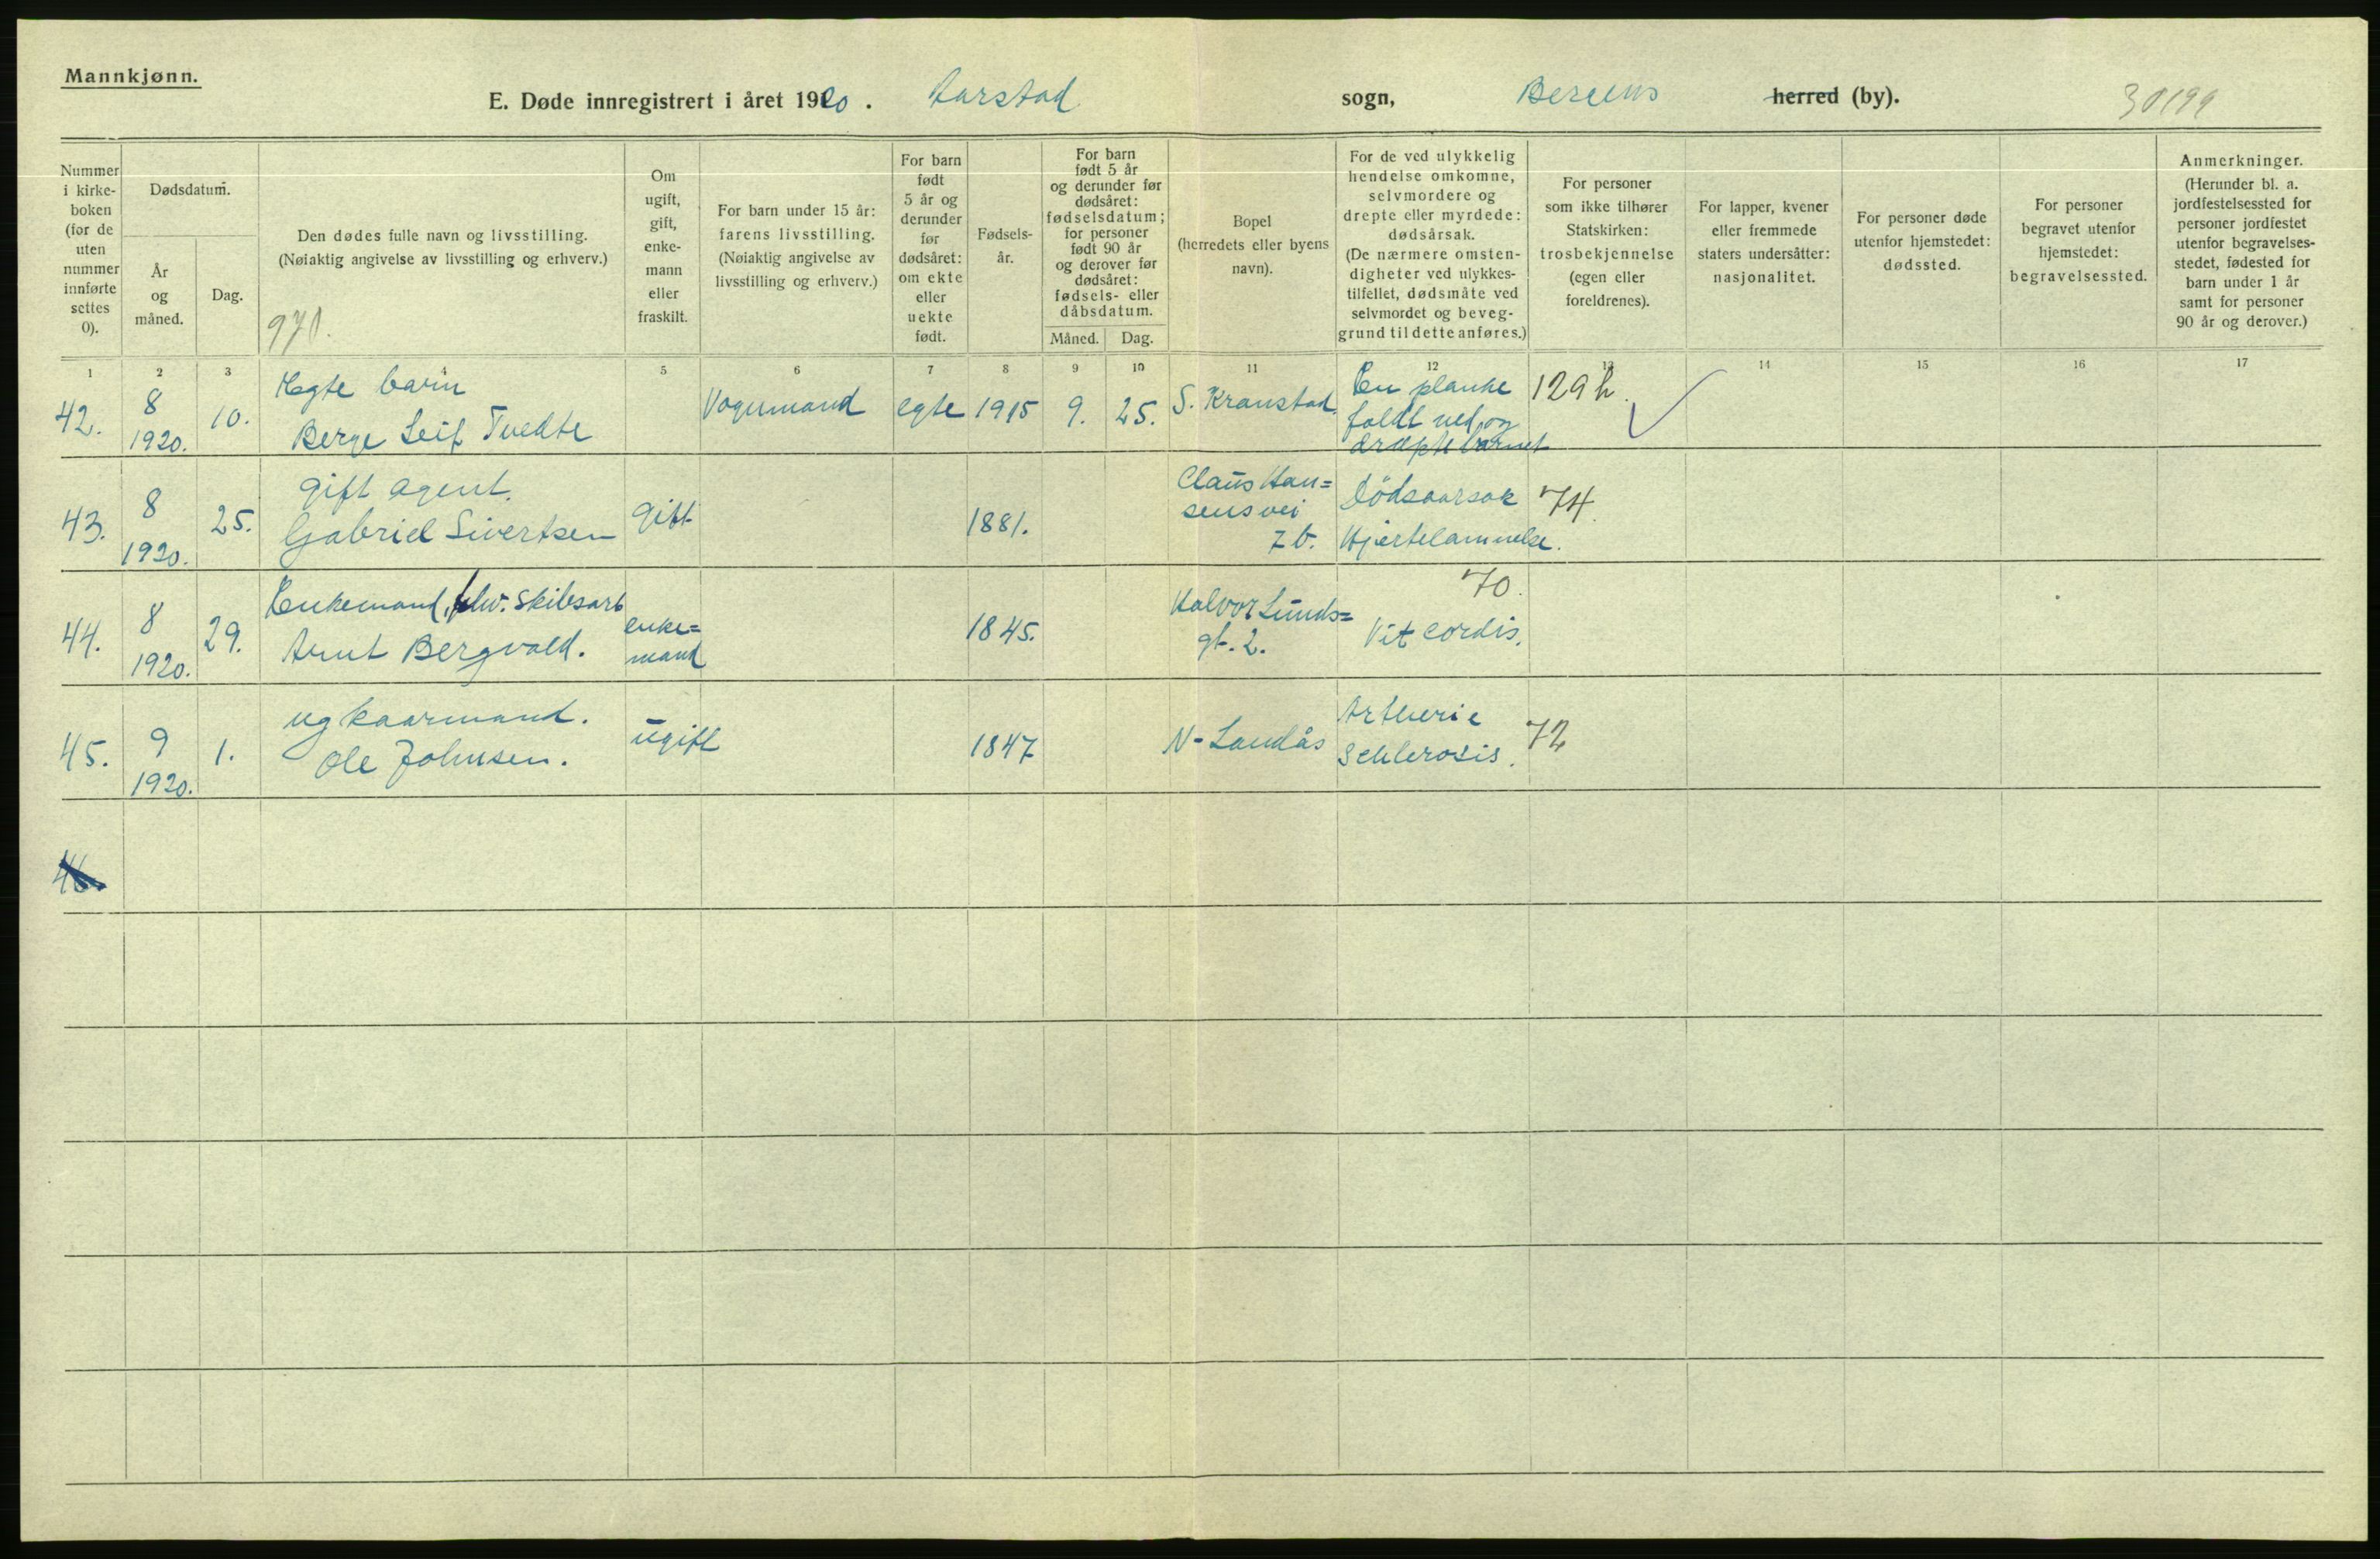 Mannkjønn.
E. Døde innregistrert i året 1920. Aarstad sogn, Bergens herred (by).
Nummer i kirke- boken (for de uten nummer innførte settes 0).
Dødsdatum.
År og måned.
Dag.
Den dødes fulle navn og livsstilling.
(Nøiaktig angivelse av livsstilling og erhverv.)
970.
Om ugift, gift, enke- mann eller fraskilt.
For barn under 15 år: farens livsstilling.
(Nøiaktig angivelse av livsstilling og erhverv.)
For barn født 5 år og derunder før dødsåret: om ekte eller uekte født.
Fødsels- år.
For barn født 5 år og derunder før dødsåret: fødselsdatum; for personer født 90 år og derover før dødsåret: fødsels- eller dåbsdatum.
Måned. Dag.
Bopel (herredets eller byens navn).
For de ved ulykkelig hendelse omkomne, selvmordere og drepte eller myrdede: dødsårsak.
(De nærmere omsten- digheter ved ulykkes- tilfellet, dødsmåte ved selvmordet og beveg- grund til dette anføres.)
For personer som ikke tilhører Statskirken: trosbekjennelse (egen eller foreldrenes).
For lapper, kvener eller fremmede staters undersåtter: nasjonalitet.
For personer døde utenfor hjemstedet: dødssted.
For personer begravet utenfor hjemstedet: begravelsessted.
Anmerkninger.
(Herunder bl. a. jordfestelsessted for personer jordfestet utenfor begravelses- stedet, fødested for barn under 1 år samt for personer 90 år og derover.)
1 2 3 4 5 6 7 8 9 10 11 12 13 14 15 16 17
42. 8 1920. 10. Ægte barn Berge Leif Tvedte Vognmand egte 1915 9. 25. S. Kronstad. En planke faldt ned og dræpte barnet 129 h.
43. 8 1920. 25. gift agent. Gabriel Sivertsen gift 1881. Claus Han= sens vei 7 b. Dödsaarsak Hjertelammelse. 74.
44. 8 1920. 29. Enkemand, skibsarb Arnt Bergvald. enke= mand 1845. Halvor Lunds= gt. 2. Vit cordis. 70.
45. 9 1920. 1. ug kaarmand. Ole Johnsen. ugift 1847 N- Landås Artherie Schlerosis. 72
46.